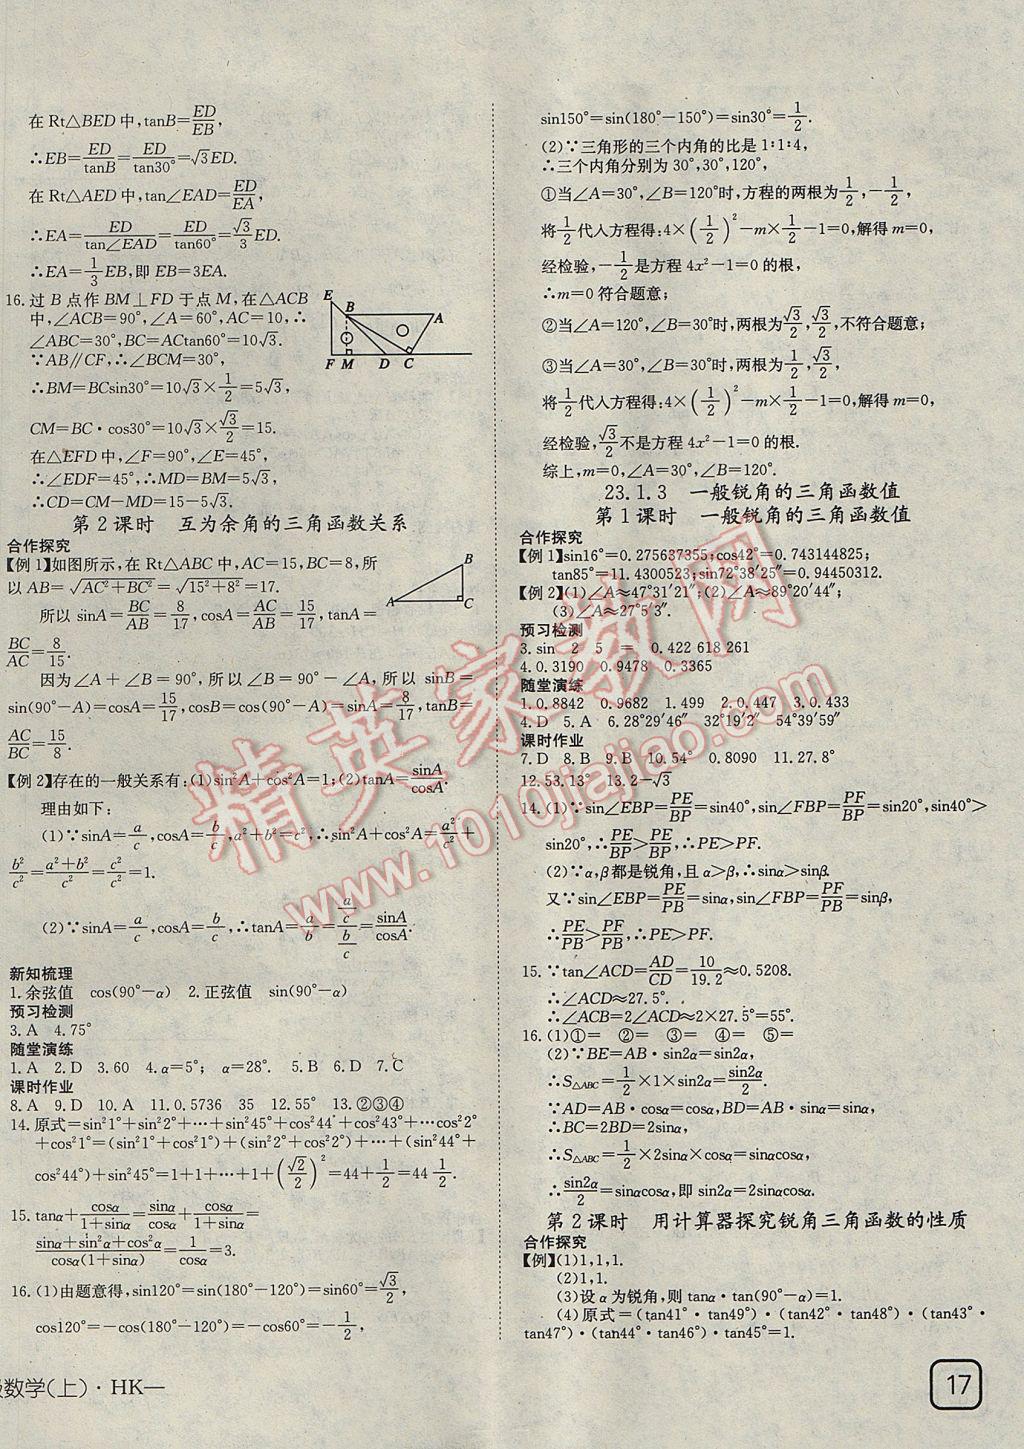 在Rt△BED中,tanB=ED/EB,
∴EB=ED/tanB=ED/tan30°=√3ED.
在Rt△AED中,tan∠EAD=ED/EA,
∴EA=ED/tan∠EAD=ED/tan60°=√3/3ED.
∴EA=1/3EB,即EB=3EA.
16.过B点作BM⊥FD于点M,在△ACB
中,∠ACB=90°,∠A=60°,AC=10,∴
∠ABC=30°,BC=ACtan60°=10√3.
∵AB∥CF,∴∠BCM=30°,
∴BM=BCsin30°=10√3×1/2=5√3,
CM=BC·cos30°=10√3×√3/2=15.
在△EFD中,∠F=90°,∠E=45°,
∴∠EDF=45°,∴MD=BM=5√3,
∴CD=CM-MD=15-5√3.
E B A F M D C
第2课时 互为余角的三角函数关系
合作探究
【例1】如图所示,在Rt△ABC中,AC=15,BC=8,所
以AB=√AC²+BC²=√15²+8²=17.
所以 sinA=BC/AB=8/17,cosA=AC/AB=15/17,tanA=
BC/AC=8/15.
B A C
因为∠A+∠B=90°,所以∠B=90°-∠A,所以 sinB=
sin(90°-A)=cosA=15/17,cosB=cos(90°-A)=sinA=8/17,tanB=
AC/BC=15/8.
【例2】存在的一般关系有:(1)sin²A+cos²A=1;(2)tanA=sinA/cosA.
理由如下:
(1)∵sinA=a/c,cosA=b/c,a²+b²=c²,∴sin²A+cos²A=a²/c²+
b²/c²=a²+b²/c²=c²/c²=1.
(2)∵sinA=a/c,cosA=b/c,∴tanA=a/b=a/c/b/c=sinA/cosA.
新知梳理
1.余弦值 cos(90°-α) 2.正弦值 sin(90°-α)
预习检测
3.A 4.75°
随堂演练
1.A 2.D 3.60 4.α=5°; α=28°. 5.B 6.D 7.C
课时作业
8.A 9.D 10.A 11.0.5736 35 12.55° 13.②③④
14.原式=sin²1°+sin²2°+…+sin²45°+cos²44°+cos²43°+…cos²2°
+cos²1°=(sin²1°+cos²1°)+(sin²2°+cos²2°)+…+(sin²44°+
cos²44°)+sin²45°=1+1+…+1+(√2/2)²=44+1/2=44 1/2.
15.tanα+cosα/1+sinα=sinα/cosα+cosα/1+sinα=
sinα+sin²α+cos²α/cosα(1+sinα)=1/cosα=3.
16.(1)由题意得,sin120°=sin(180°-120°)=sin60°=√3/2,
cos120°=-cos(180°-120°)=-cos60°=-1/2,
级数学(上)·HK—
sin150°=sin(180°-150°)=sin30°=1/2.
(2)∵三角形的三个内角的比是1:1:4,
∴三个内角分别为30°,30°,120°,
①当∠A=30°,∠B=120°时,方程的两根为1/2,-1/2,
将1/2代入方程得:4×(1/2)²-m×1/2-1=0,解得m=0,
经检验,-1/2是方程4x²-1=0的根.
∴m=0符合题意;
②当∠A=120°,∠B=30°时,两根为√3/2,√3/2,不符合题意;
③当∠A=30°,∠B=30°时,两根为1/2,√3/2,
将1/2代入方程得:4×(1/2)²-m×1/2-1=0,解得m=0,
经检验,√3/2不是方程4x²-1=0的根.
综上,m=0,∠A=30°,∠B=120°.
23.1.3 一般锐角的三角函数值
第1课时 一般锐角的三角函数值
合作探究
【例1】sin16°=0.275637355;cos42°=0.743144825;
tan85°=11.4300523;sin72°38′25″=0.94450312.
【例2】(1)∠A≈47°31′21″;(2)∠A≈89°20′44″;
(3)∠A≈27°5′3″.
预习检测
3.sin 2 5 = 0.422 618 261
4.0.3190 0.9478 0.3365
随堂演练
1.0.8842 0.9682 1.499 2.0.447 3.0.433
4.D 5.A 6.28°29′46″ 32°19′2″ 54°39′59″
课时作业
7.D 8.B 9.B 10.54° 0.8090 11.27.8°
12.53.13° 13.2-√3
14.(1)∵sin∠EBP=PE/BP=sin40°,sin∠FBP=PF/BP=sin20°,sin40°>
sin20°,∴PE/BP>PF/BP,∴PE>PF.
(2)∵α,β都是锐角,且α>β,∴sinα>sinβ.
又∵sin∠EBP=PE/PB=sinα,sin∠FBP=PF/PB=sinβ,
∴PE/PB>PF/PB,∴PE>PF.
15.∵tan∠ACD=AD/CD=10/19.2≈0.5208.
∴∠ACD≈27.5°.
∴∠ACB=2∠ACD≈2×27.5°=55°.
16.(1)①= ②= ③= ④= ⑤=
(2)∵BE=AB·sin2α=sin2α,
∴S△ABC=1/2×1×sin2α=sin2α/2.
∵AD=AB·cosα=cosα,BD=AB·sinα=sinα,
∴BC=2BD=2sinα.
∴S△ABC=1/2×2sinα×cosα=sinαcosα,
∴sin2α/2=sinαcosα,即sin2α=2sinαcosα.
第2课时 用计算器探究锐角三角函数的性质
合作探究
【例】(1)1,1,1.
(2)1,1.
(3)设α为锐角,则tanα·tan(90°-α)=1.
(4)原式=(tan41°·tan49°)·(tan42°·tan48°)·(tan43°·
tan47°)·(tan44°·tan46°)·tan45°=1.
17
精英家教网
www.1010jiajiao.com